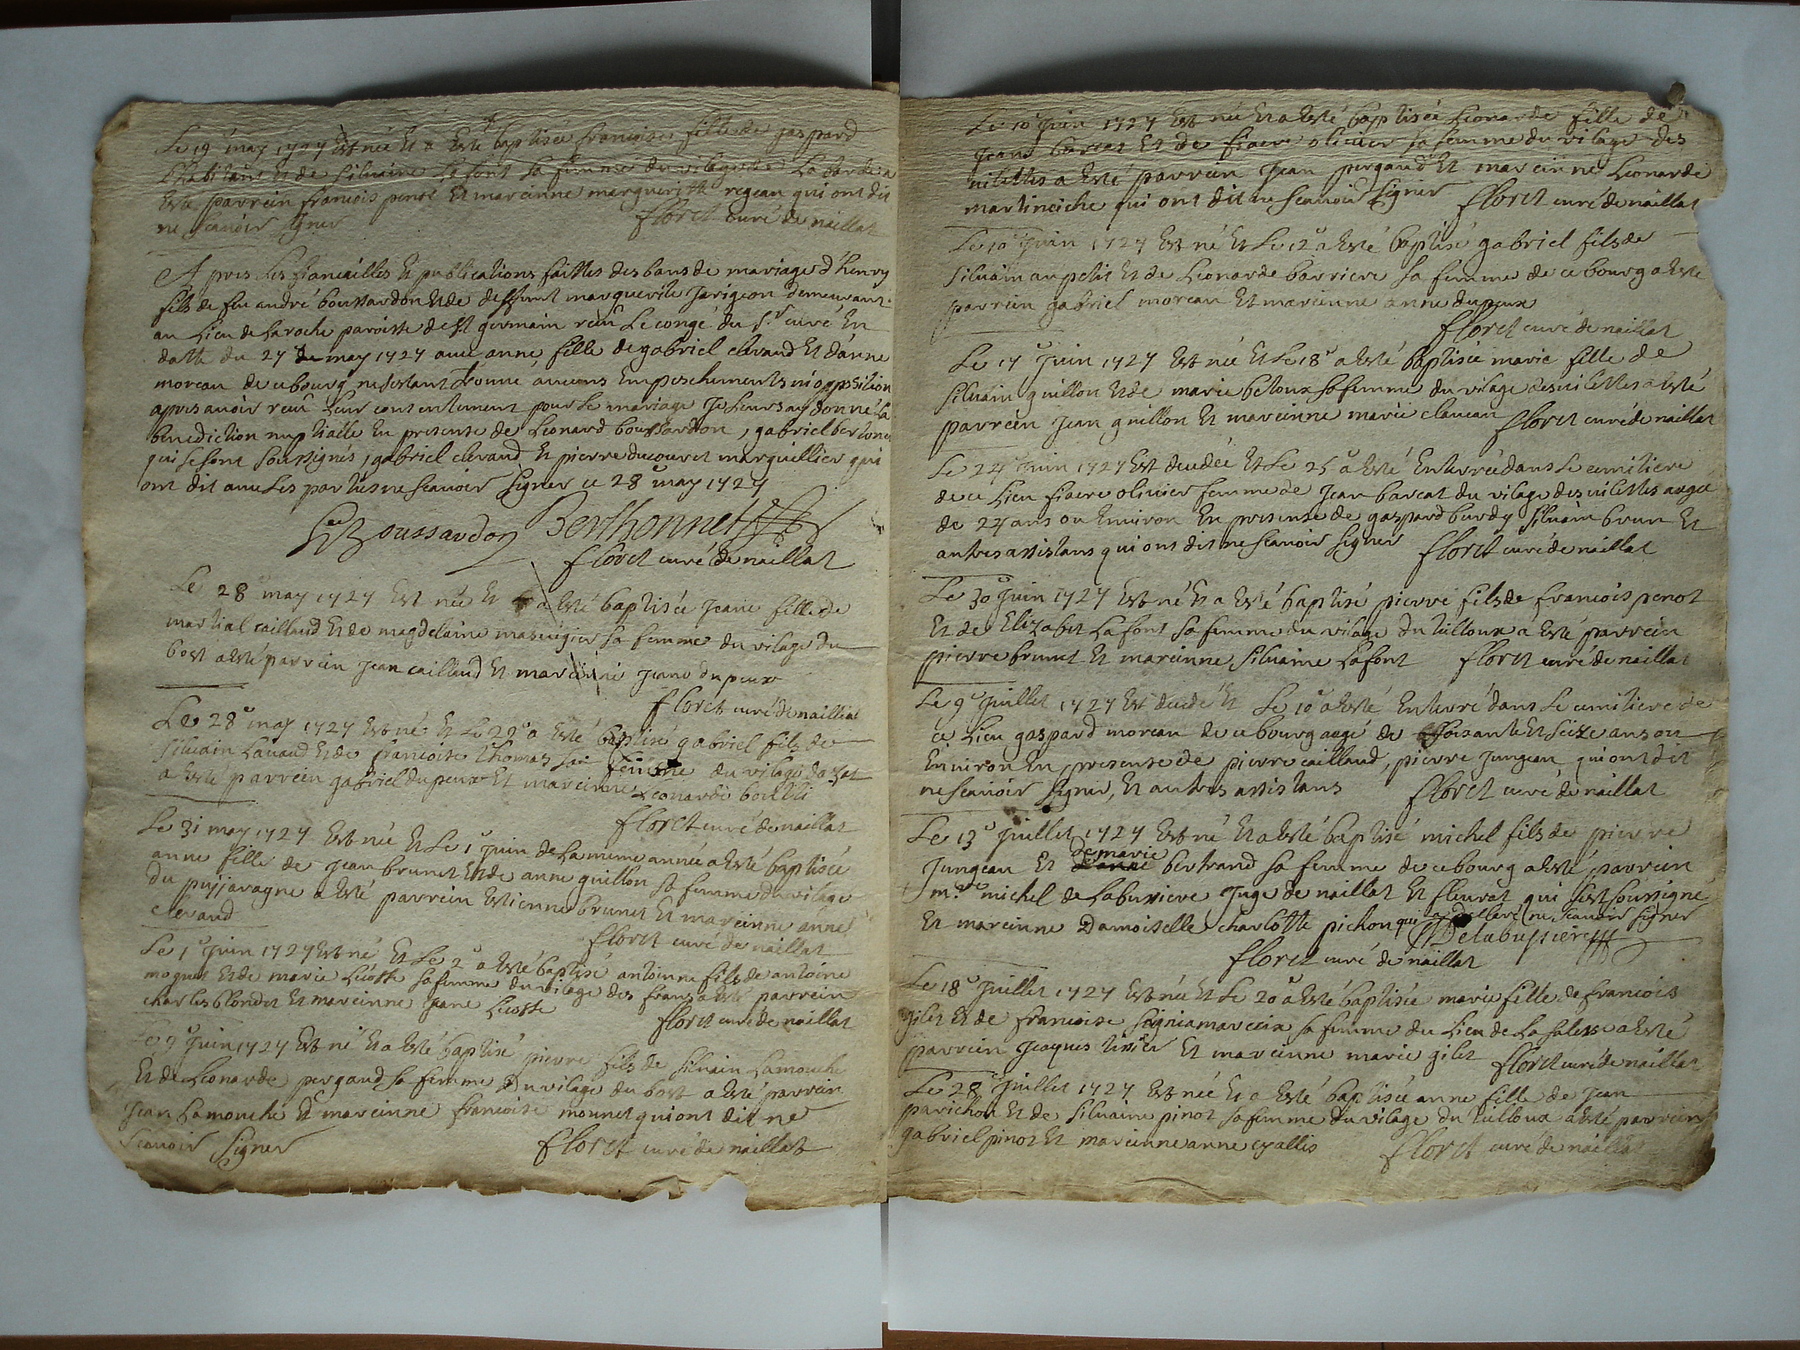 Le 19e may 1727 est née et a esté baptisée francoise fille de gaspard
et de silvaine Lafont sa femme du vilage de
esté parrein francois penot et mareinne margueritte qui ont dit
ne scavoir signer floret curé de naillat
Apres les fiancailles et publications faittes des bans de mariage d'henry
fils de feu andré boussardon et de deffunt marguerite Jarigeon demeurant
au Lieu de Laroche paroisse de st germain reçu Le congé du sr curé en
datte du 27 may 1727 avec anne fille de gabriel clevaud et d'anne
moreau de ce bourg ne sestant trouvé aucuns empeschements ni opposition
apres avoir reçu leur contentement pour le mariage Je leurs ay donné la
benediction nuptialle en presence de Leonard boussardon, gabriel bertonet
qui se sont soussignés, gabriel clevaud et pierre ducouret marguellier qui
ont dit avec les parties ne scavoir signer ce 28e may 1727
Boussardon Berthonnet
floret curé de naillat
Le 28e may 1727 est née et a esté baptisée Jeane fille de
martial caillaud et de magdelaine sa femme du vilage du
bost a esté parrein Jean caillaud et mareinne Jeane dupeux
floret curé de naillat
Le 28e may 1727 est né et Le 29e a esté baptisé gabriel fils de
silvain Lavaud et de francoise thomas sa femme du vilage
a esté parrein gabriel dupeux et mareinne Leonarde
floret curé de naillat
Le 31 may 1727 est née et Le 1er Juin de la meme année a esté baptisée
anne fille de Jean brunet et de anne guillon sa femme du vilage
du puyjavagne a esté parrein estienne brunet et mareinne anne
clevaud floret curé de naillat
Le 1er Juin 1727 est né et Le 2e a esté baptisé antoinne fils de antoine
moquet et de marie Licotte sa femme du vilage des frans a esté parrein
charles blondet et mareinne Jeane Licotte
floret curé de naillat
Le 9e Juin 1727 est né et a esté baptisé pierre fils de silvain Lamouche
et de Leonarde pergaud sa femme du vilage du bost a esté parrein
Jean Lamouche et mareinne francoise mounet qui ont dit ne
scavoir signer floret curé de naillat
Le 10e Juin 1727 est née et a esté baptisée Leonarde fille de
Jeane barcat et de fiacre olivier sa femme du vilage des
vilettes a esté parrein Jean pergaud et mareinne Leonarde
martineiche qui ont dit ne scavoir signer floret curé de naillat
Le 10e Juin 1727 est né et Le 12e a esté baptisé gabriel fils de
silvain aupetit et de Leonarde barriere sa femme de ce bourg a esté
parrein gabriel moreau et mareinne anne dupeux
floret curé de naillat
Le 17e Juin 1727 est née et Le 18e a esté baptisée marie fille de
silvain guillon et de marie betoux sa femme du vilage des vilettes a esté
parrein Jean guillon et mareinne marie claveau floret curé de naillat
Le 24e Juin 1727 est decedée et Le 25e a esté enterrée dans Le cemitiere
de ce Lieu fiacre olivier femme de Jean barcat du vilage des vilettes aagée
de 27 ans ou environ en presence de gaspard burdy silvain brun et
autres assistans qui ont dit ne scavoir signer floret curé de naillat
Le 30e Juin 1727 est né et a esté baptisé pierre fils de francois penot
et de Elizabet Lafont sa femme du vilage du tilloux a esté parrein
pierre brunet et mareinne silvaine Lafont floret curé de naillat
Le 9e Juillet 1727 est decedé et Le 10e a esté enterré dans Le cemitiere de
ce Lieu gaspard moreau de ce bourg aagé de soisante et seize ans ou
environ en presence de pierre caillaud, pierre Jungeau qui ont dit
ne scavoir signer, et autres assistans floret curé de naillat
Le 13e Juillet 1727 est né et a esté baptisé michel fils de pierre
Jungeau et de marie bertrand sa femme de ce bourg a esté parrein
mre michel de Labussiere Juge de naillat et fleurat, qui sest soussigné
et mareinne Damoiselle charlotte pichon qui a declaré ne scavoir signer
Delabussiere
floret curé de naillat
Le 18e Juillet 1727 est née et Le 20e a esté baptisée marie fille de francois
gilet et de francoise sa femme du Lieu de La a esté
parrein Jacques tixier et mareinne marie gilet floret curé de naillat
Le 28e Juillet 1727 est née et a esté baptisée anne fille de Jean
parichon et de silvaine pinot sa femme du vilage du tilloux a esté parrein
gabriel pinot et mareinne anne floret curé de naillat